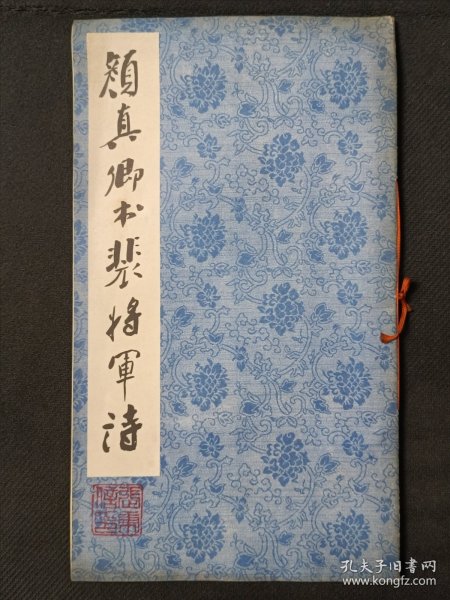 颜真卿书裴将軍诗
孔夫子旧书网
www.kongfz.com